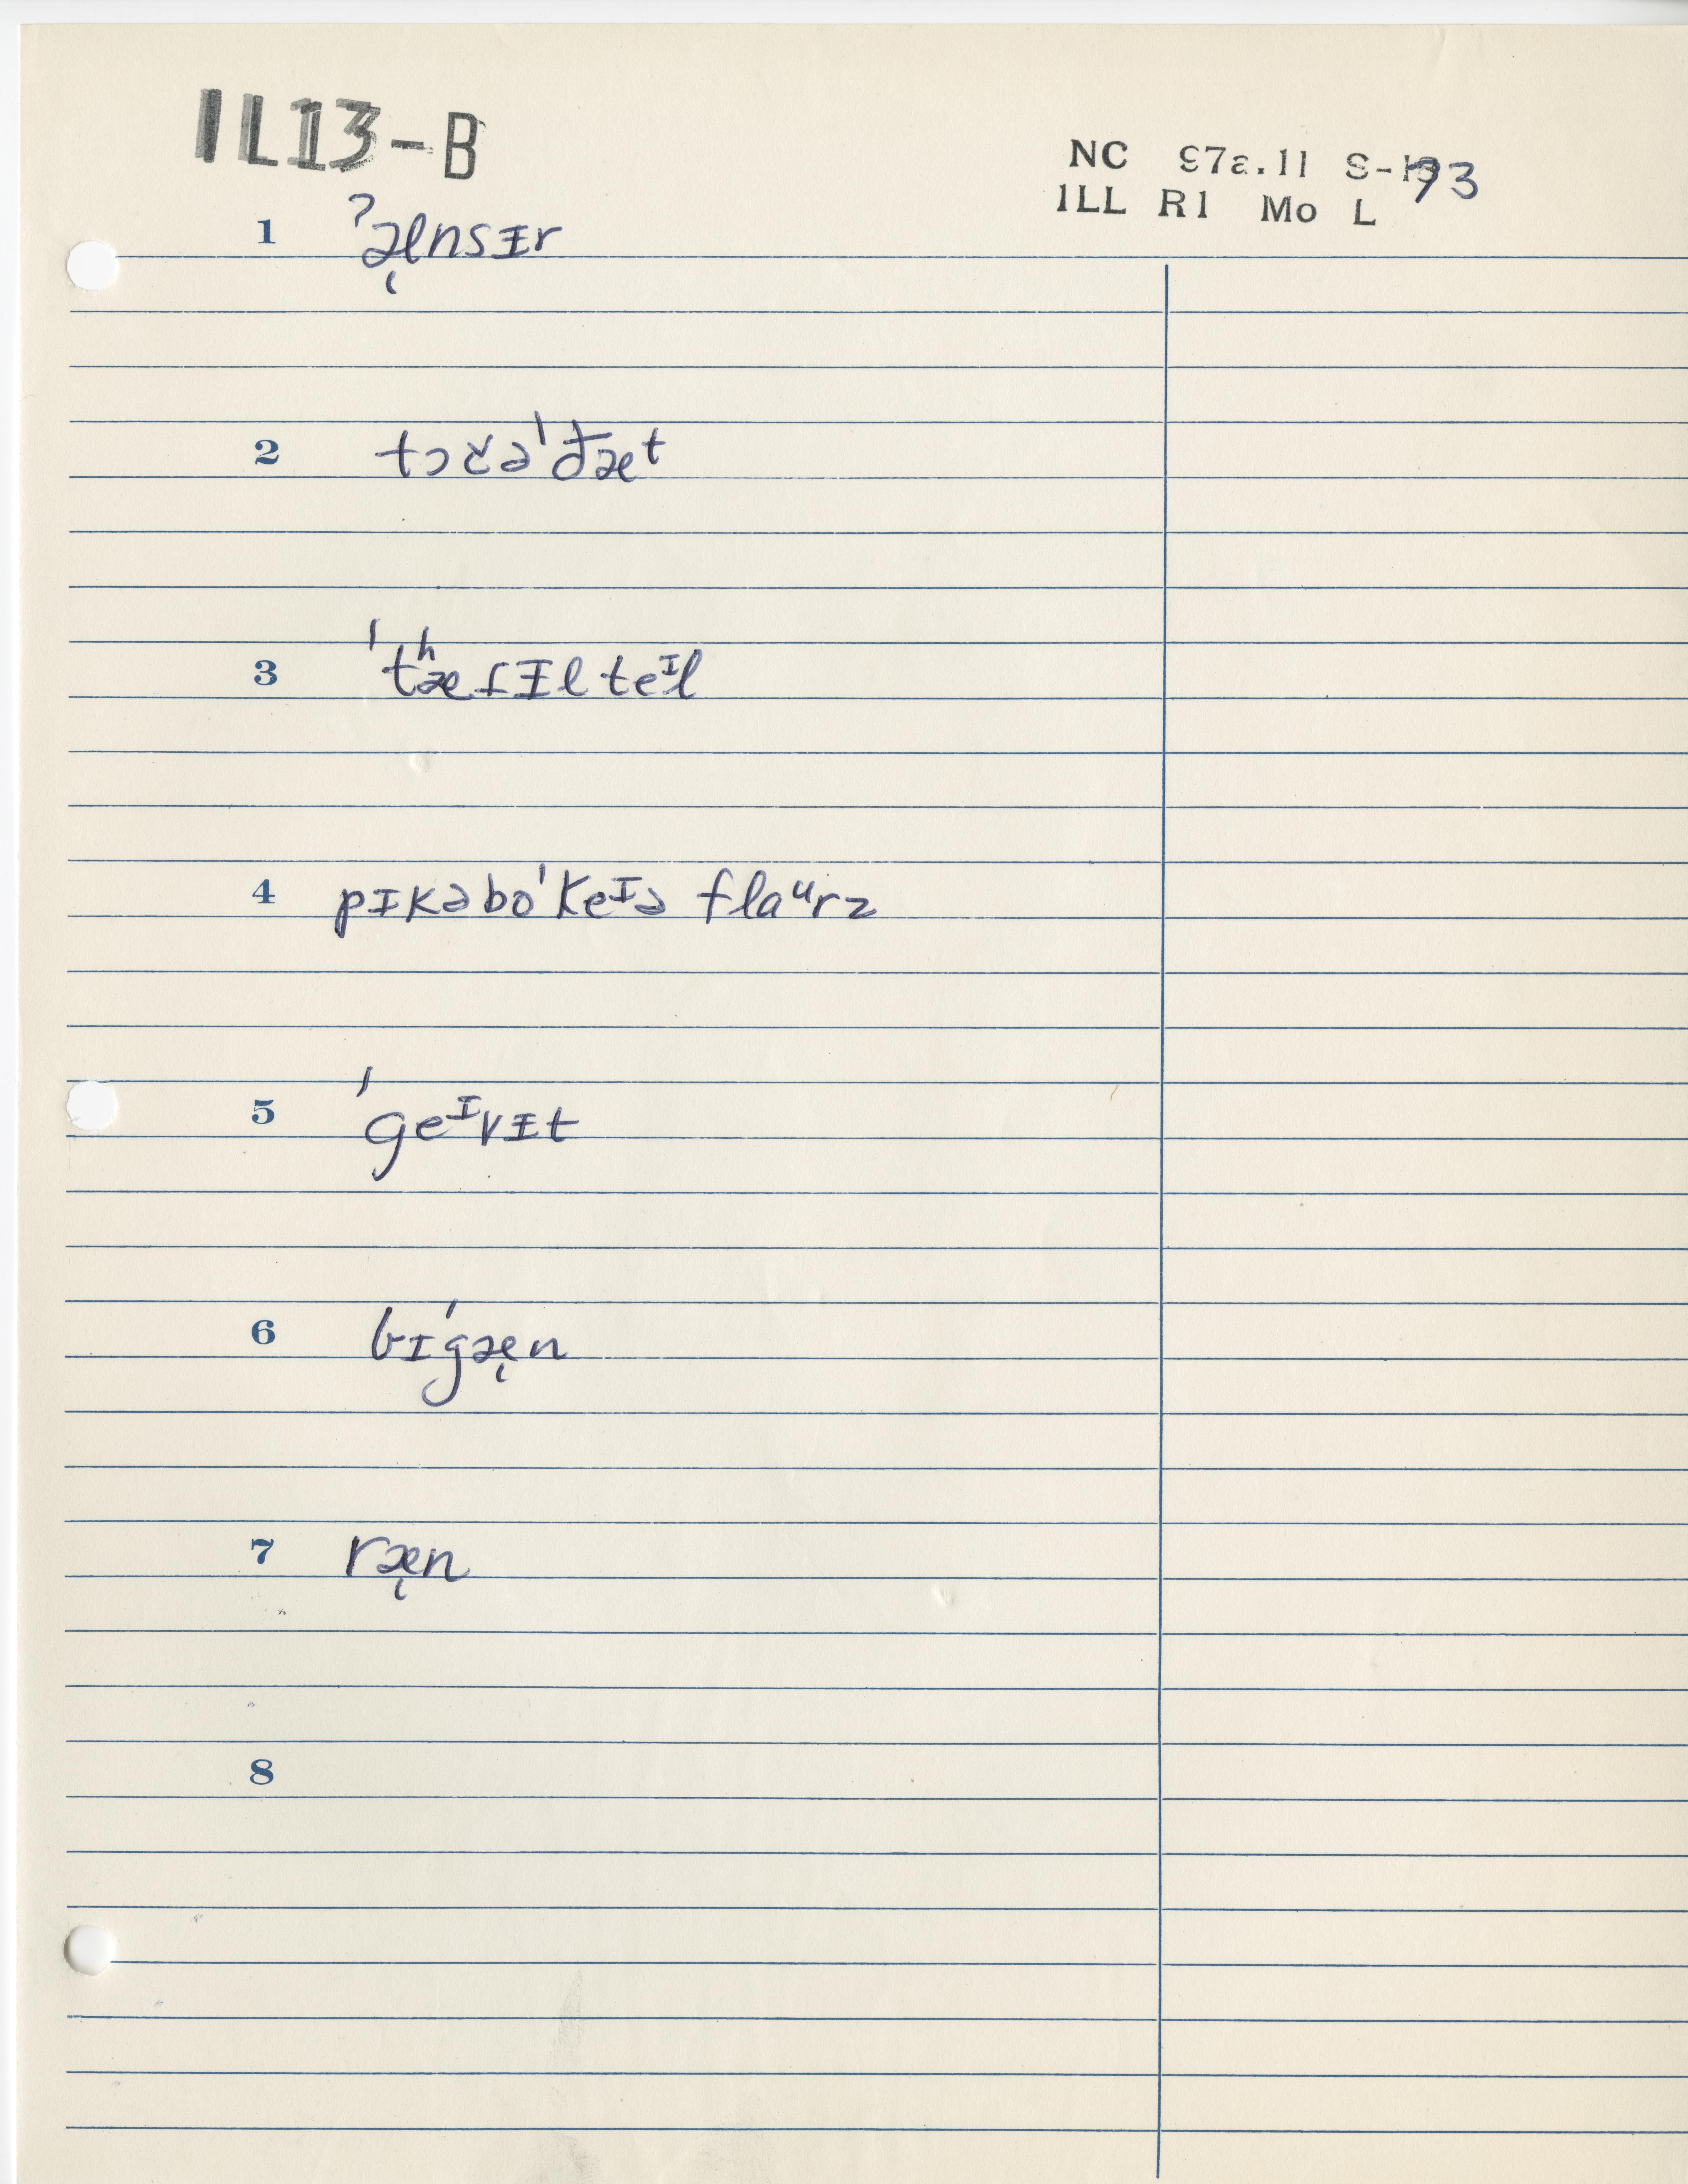 IL13-B
NC 978.11 S-193
ILL R1 Mo L
1 ʔæ̨nsɪr
2 tɔʤəˈđæt
3 ˈtʰæsɪl teᴵl
4 pɪkəboˈkeᴵə flaᵘrz
5 ˈgeᴵvɪt
6 bɪˈgæ̨n
7 ræ̨n
8